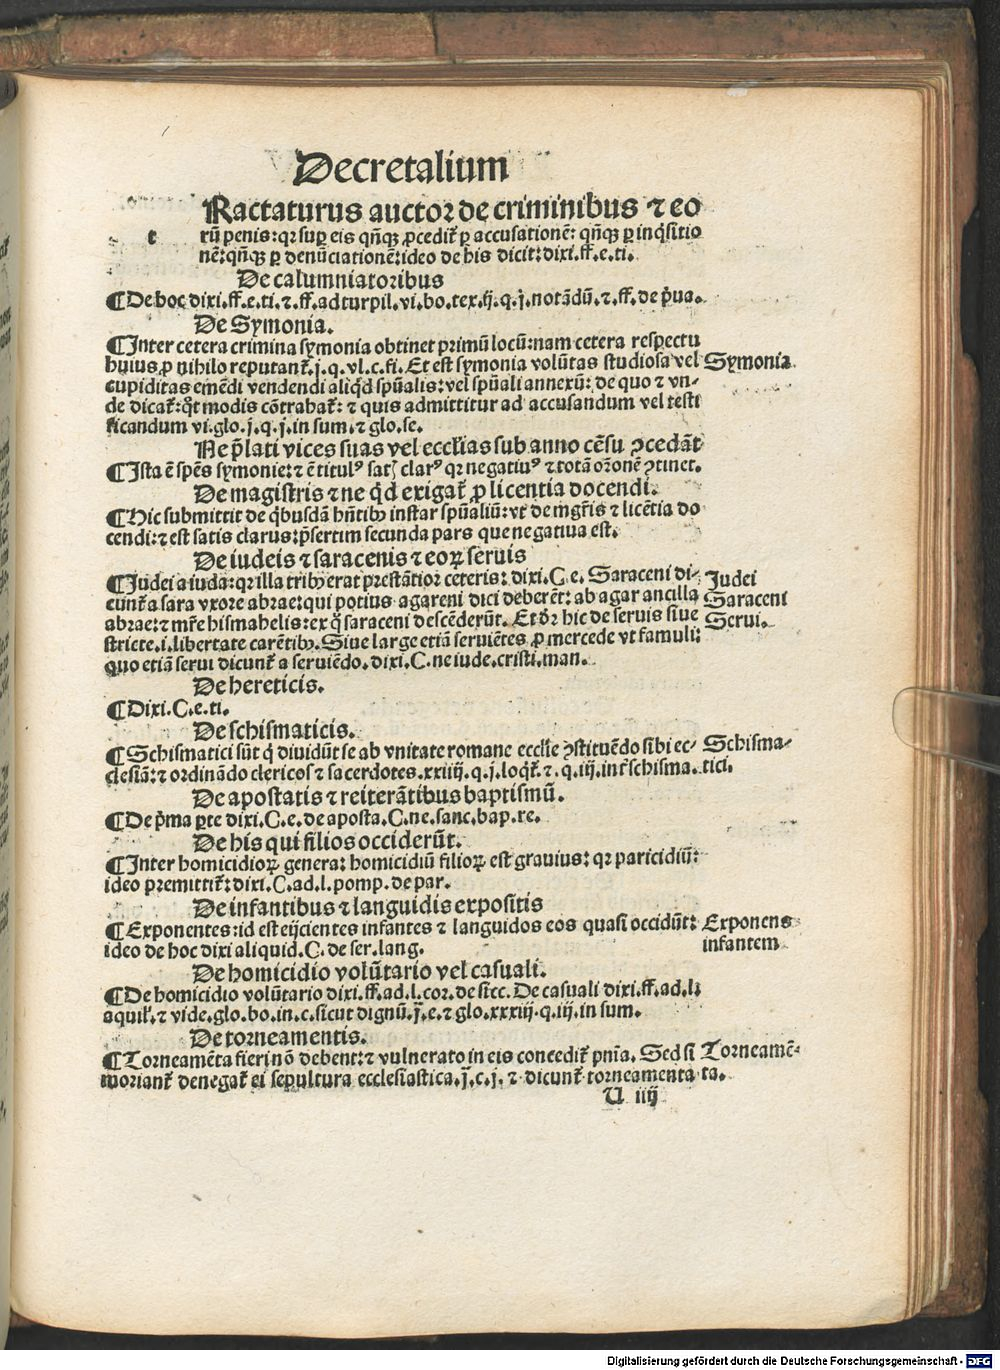 Decretalium
Ractaturus auctor de criminibus ⁊ eo
t rū penis: qꝛ suꝑ eis qñqꝫ ꝓcedit᷑ ꝑ accusationē: qñqꝫ ꝑ inq̇sitio
nē: qñqꝫ ꝑ denūciationē: ideo de his dicit: dixi.ff.e.ti.
De calumniatoribus
¶ De hoc dixi.ff.e.ti.⁊.ff.ad turpil.vi.bo.tex.ij.q.j.notādū.⁊.ff.de p̄ua.
De Symonia.
¶ Inter cetera crimina symonia obtinet primū locū: nam cetera respectu
huius ꝓ nihilo reputant᷑.j.q.vl.c.fi. Et est symonia volūtas studiosa vel
cupiditas emēdi vendendi aliq̇d spūalis: vel spūali annexū: de quo ⁊ vn-
de dicat᷑: qͦt modis cōtrahat᷑: ⁊ quis admittitur ad accusandum vel testi
ficandum vi.glo.j.q.j.in sum.⁊ glo.se.
Symonia
Ne p̄lati vices suas vel eccl̄ias sub anno cēsu ꝯcedāt
¶ Ista ē spēs symonie: ⁊ ē titulꝰ satꝭ clarꝰ qꝛ negatiuꝰ ⁊ totā or̄onē ꝯtinet.
De magistris ⁊ ne q̇d exigat᷑ ꝓ licentia docendi.
¶ Hic submittit de q̇busdā hn̄tibꝫ instar spūaliū: vt de mgr̄is ⁊ licētia do
cendi: ⁊ est satis clarus: p̄sertim secunda pars que negatiua est.
De iudeis ⁊ saracenis ⁊ eoꝝ seruis
¶ Judei a iuda: qꝛ illa tribꝫ erat prestātior ceteris: dixi.C.e. Saraceni di-
cunt᷑ a sara vxore abrae: qui potius agareni dici deberēt: ab agar ancilla
abrae: ⁊ mr̄e hismahelis: ex q̇ saraceni descēderūt. Et dr̄ hic de seruis siue
stricte.i.libertate carētibꝫ. Siue large etiā seruiētes ꝓ mercede vt famuli:
quo etiā serui dicunt᷑ a seruiēdo.dixi.C.ne iude.cristi.man.
Judei
Saraceni
Serui.
De hereticis.
¶ Dixi.C.e.ti.
De schismaticis.
¶ Schismatici sūt q̇ diuidūt se ab vnitate romane eccl̄ie ꝯstituēdo sibi ec-
clesiā: ⁊ ordinādo clericos ⁊ sacerdotes.xxiiij.q.j.loqt᷑.⁊.q.iij.int᷑ schisma.
Schisma-
tici.
De apostatis ⁊ reiterātibus baptismū.
¶ De p̄ma ꝑte dixi.C.e.de aposta.C.ne.sanc.bap.re.
De his qui filios occiderūt.
¶ Inter homicidioꝝ genera: homicidiū filioꝝ est grauius: qꝛ paricidiū:
ideo premittit᷑: dixi.C.ad.l.pomp.de par.
De infantibus ⁊ languidis expositis
¶ Exponentes: id est eijcientes infantes ⁊ languidos eos quasi occidūt:
ideo de hoc dixi aliquid.C.de ser.lang.
Exponens
infantem
De homicidio volūtario vel casuali.
¶ De homicidio volūtario dixi.ff.ad.l.cor.de sicc. De casuali dixi.ff.ad.l.
aquil᷑.⁊ vide.glo.bo.in.c.sicut dignū.j̄.e.⁊ glo.xxxiij.q.iij.in sum.
De torneamentis.
¶ Torneamēta fieri nō debent: ⁊ vulnerato in eis concedit᷑ pn̄ia. Sed si
moriant᷑ denegat᷑ ei sepultura ecclesiastica.j̄.c.j.⁊ dicunt᷑ torneamenta
Torneamē-
ta.
U iiij
Digitalisierung gefördert durch die Deutsche Forschungsgemeinschaft - DFG